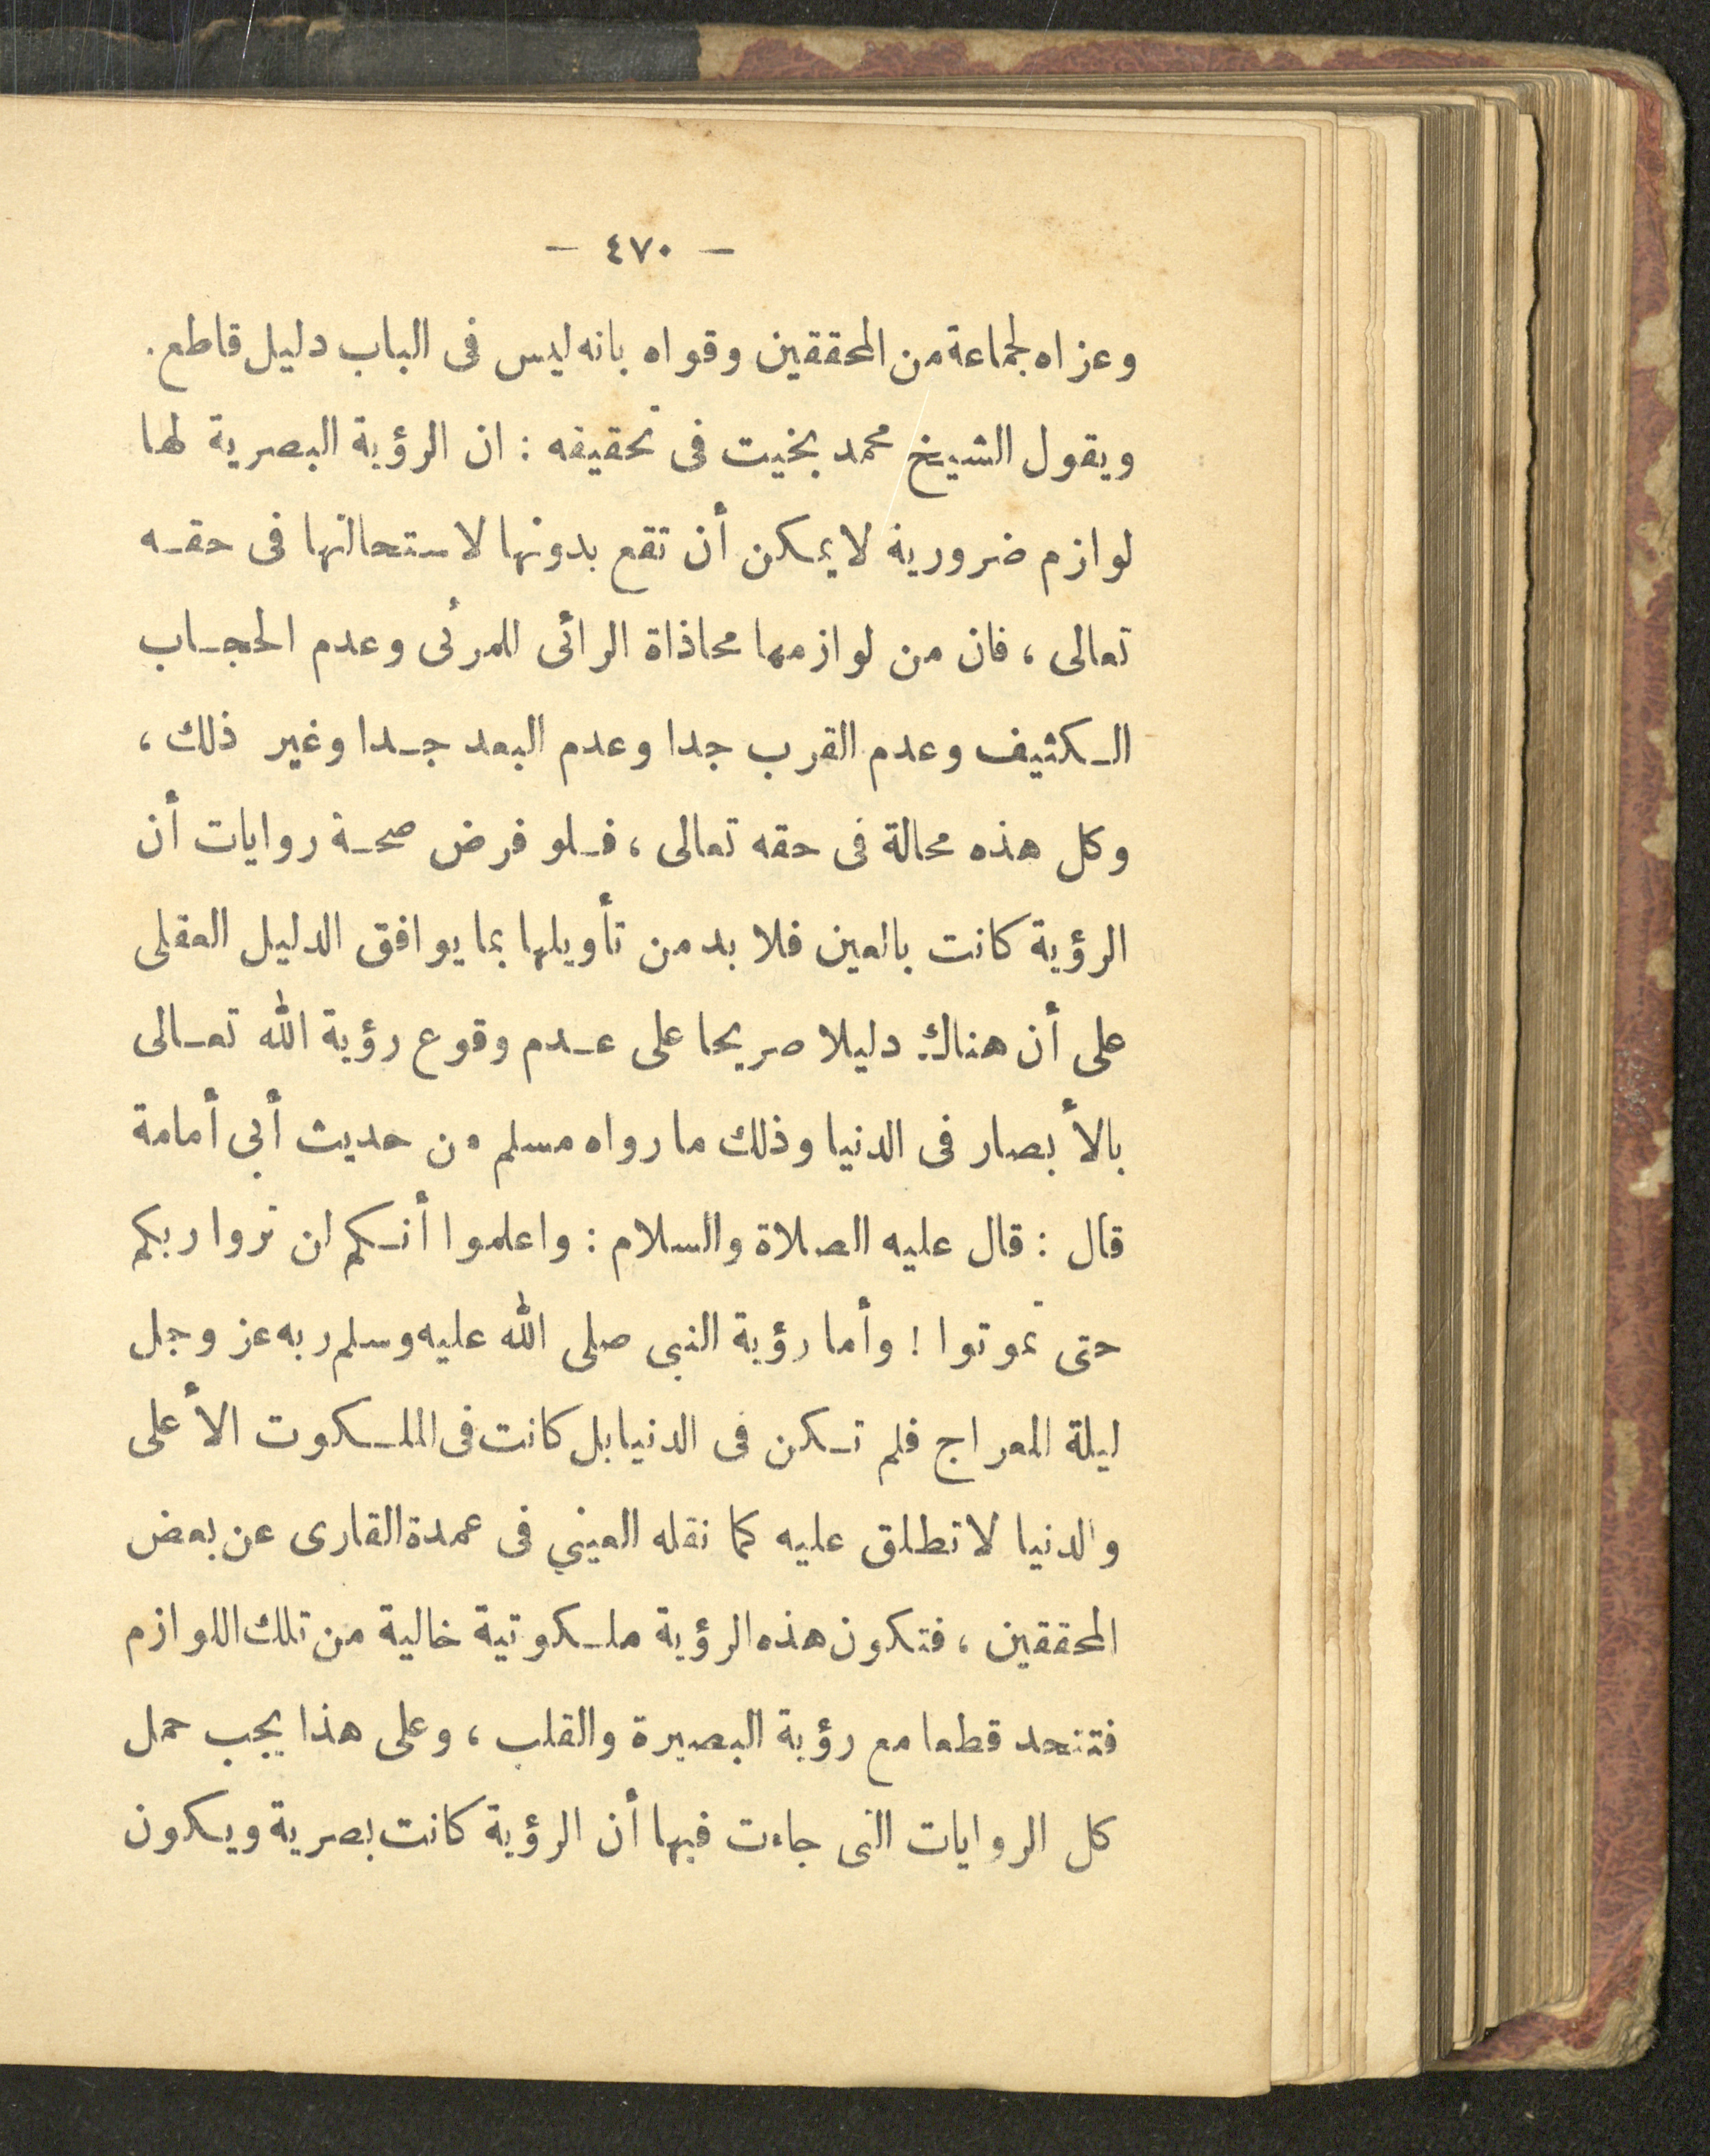 — ٤٧٠ —
وعزاه لجماعة من المحققين وقواه بانه ليس فى الباب دليل قاطع.
ويقول الشيخ محمد بخيت فى تحقيقه : ان الرؤية البصرية لها
لوازم ضرورية لا يمكن أن تقع بدونها لاستحالتها فى حقه
تعالى ، فان من لوازمها محاذاة الرائى للمرئى وعدم الحجاب
الكثيف وعدم القرب جدا وعدم البعد جدا وغير ذلك ،
وكل هذه محالة فى حقه تعالى ، فلو فرض صحة روايات أن
الرؤية كانت بالعين فلا بد من تأويلها بما يوافق الدليل العقلى
على أن هناك دليلا صريحا على عدم وقوع رؤية الله تعالى
بالأبصار فى الدنيا وذلك ما رواه مسلم من حديث أبى أمامة
قال : قال عليه الصلاة والسلام : واعلموا أنكم لن تروا ربكم
حتى تموتوا ! وأما رؤية النبى صلى الله عليه وسلم ربه عز وجل
ليلة المعراج فلم تكن فى الدنيا بل كانت فى الملكوت الأعلى
والدنيا لا تطلق عليه كما نقله العينى فى عمدة القارى عن بعض
المحققين ، فتكون هذه الرؤية ملكوتية خالية من تلك اللوازم
فتتحد قطعا مع رؤية البصيرة والقلب ، وعلى هذا يجب حمل
كل الروايات التى جاءت فيها أن الرؤية كانت بصرية ويكون